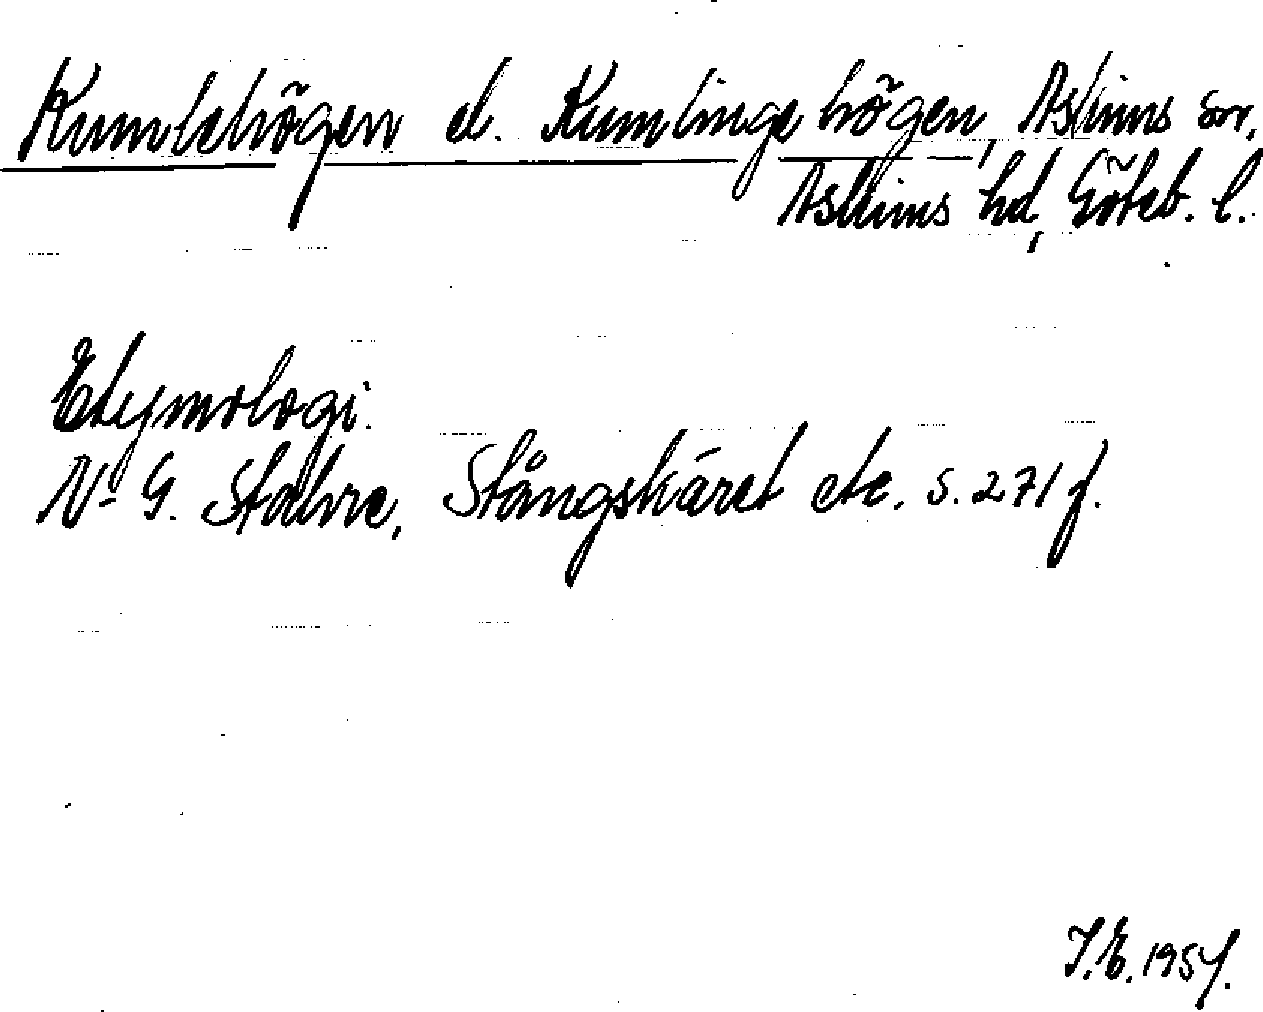 Kumlehögen el. Kumlingehögen, Askims sn,
Askims hd, Göteb. l.
Etymologi.
N-G. Stahre, Stångskäret etc. s. 271 f.
I.E. 1954.